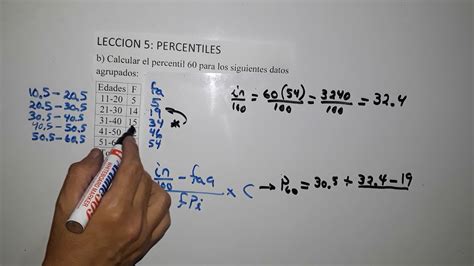 LECCION 5: PERCENTILES
b) Calcular el percentil 60 para los siguientes datos
agrupados:
Edades F fa
10,5 - 20,5 11-20 5 5
20,5 - 30,5 21-30 14 19
30,5 - 40,5 31-40 15 34 *
40,5 - 50,5 41-50 46
50,5 - 60,5 51-6 54
in/100 = 60(54)/100 = 3240/100 = 32.4
in/100 - faa / fPi x C → P60 = 30.5 + 32.4 - 19